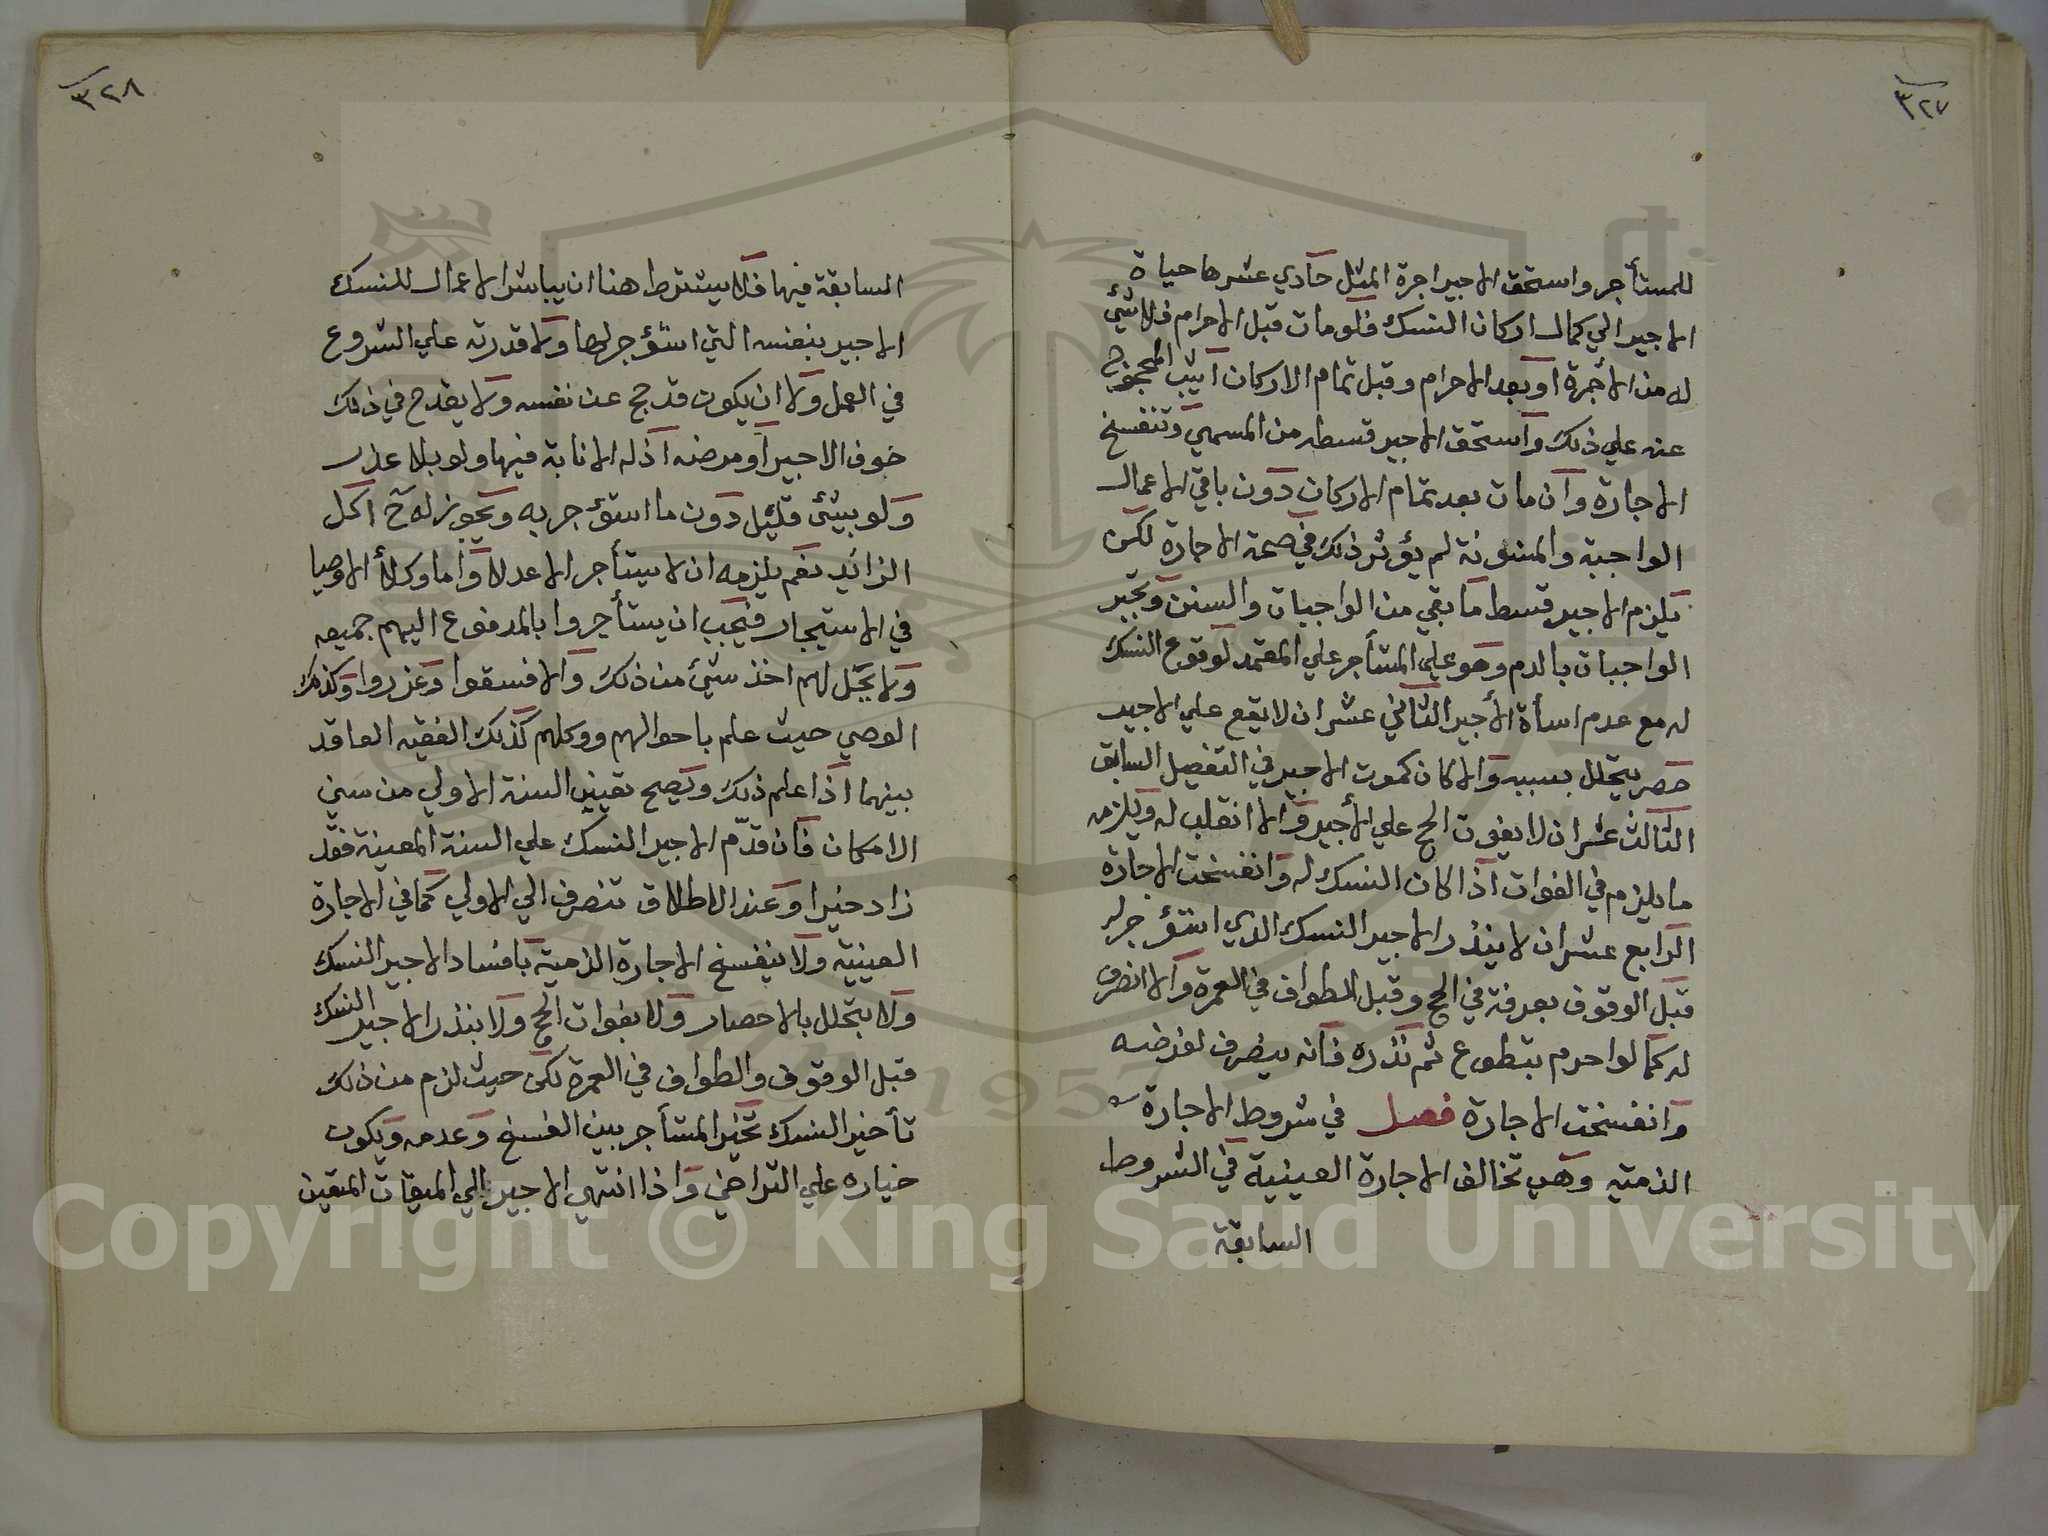 ٣٢٧
للمستأجر واستحق الاجير اجرة المثل حادي عشرها حياة
الاجير الي كمال اركان النسك فلو مات قبل الاحرام فلا شئ
له من الأجرة او بعد الاحرام وقبل تمام الاركان اثيب المحجوج
عنه علي ذلك واستحق الاجير قسطه من المسمي وتنفسخ
الاجارة وان مات بعد تمام الاركان دون باقي الاعمال
الواجبة والمسنونة لم يؤثر ذلك في صحة الاجارة لكن
يلزم الاجير قسط ما بقي من الواجبات والسنن وتجبر
الواجبات بالدم وهو علي المستأجر علي المعتمد لوقوع النسك
له مع عدم اسأة الأجير الثاني عشر ان لا يقع علي الاجير
حصر يتحلل بسببه والا كان كموت الاجير في التفصيل السابق
الثالث عشر ان لا يفوت الحج علي الأجير والا انقلب له ويلزمه
ما يلزم في الفوات اذا كان النسك له وانفسخت الاجارة
الرابع عشر ان لا ينذر الاجير النسك الذي استؤجر له
قبل الوقوف بعرفة في الحج وقبل الطواف في العمرة والا انصرف
له كما لو احرم بتطوع ثم نذره فانه ينصرف لفرضه
وانفسخت الاجارة فصل في شروط الاجارة
الذمية وهي تخالف الاجارة العينية في الشروط
السابقة
٣٢٨
السابقة فيها فلا يشترط هنا ان يباشر الاعمال للنسك
الاجير بنفسه التي استؤجر لها ولا قدرته علي الشروع
في العمل ولا ان يكون قد حج عن نفسه ولا يقدح في ذلك
خوف الاجير او مرضه اذ له الانابة فيها ولو بلا عذر
ولو بشئ قليل دون ما استؤجر به ويجوز له ح اكل
الزائد نعم يلزمه ان لا يستأجر الا عدلا واما وكلأ الاوصيا
في الاستيجار فيجب ان يستأجروا بالمدفوع اليهم جميعه
ولا يحل لهم اخذ شئ من ذلك والا فسقوا وعزروا وكذلك
الوصي حيث علم باحوالهم ووكلهم كذلك الفقيه العاقد
بينهما اذا علم ذلك ويصح تعيين السنة الاولي من سني
الامكان فان قدّم الاجير النسك علي السنة المعينة فقد
زاد خيرا وعند الاطلاق تنصرف الي الاولي كما في الاجارة
العينية ولا ينفسخ الاجارة الذمية بافساد الاجير النسك
ولا بتحلل بالاحصار ولا بفوات الحج ولا بنذر الاجير النسك
قبل الوقوف والطواف في العمرة لكن حيث لزم من ذلك
تأخير النسك تخير المستأجر بين الفسخ وعدمه ويكون
خياره علي التراخي واذا انتهي الاجير الي الميقات المتعين
Copyright © King Saud University
1957